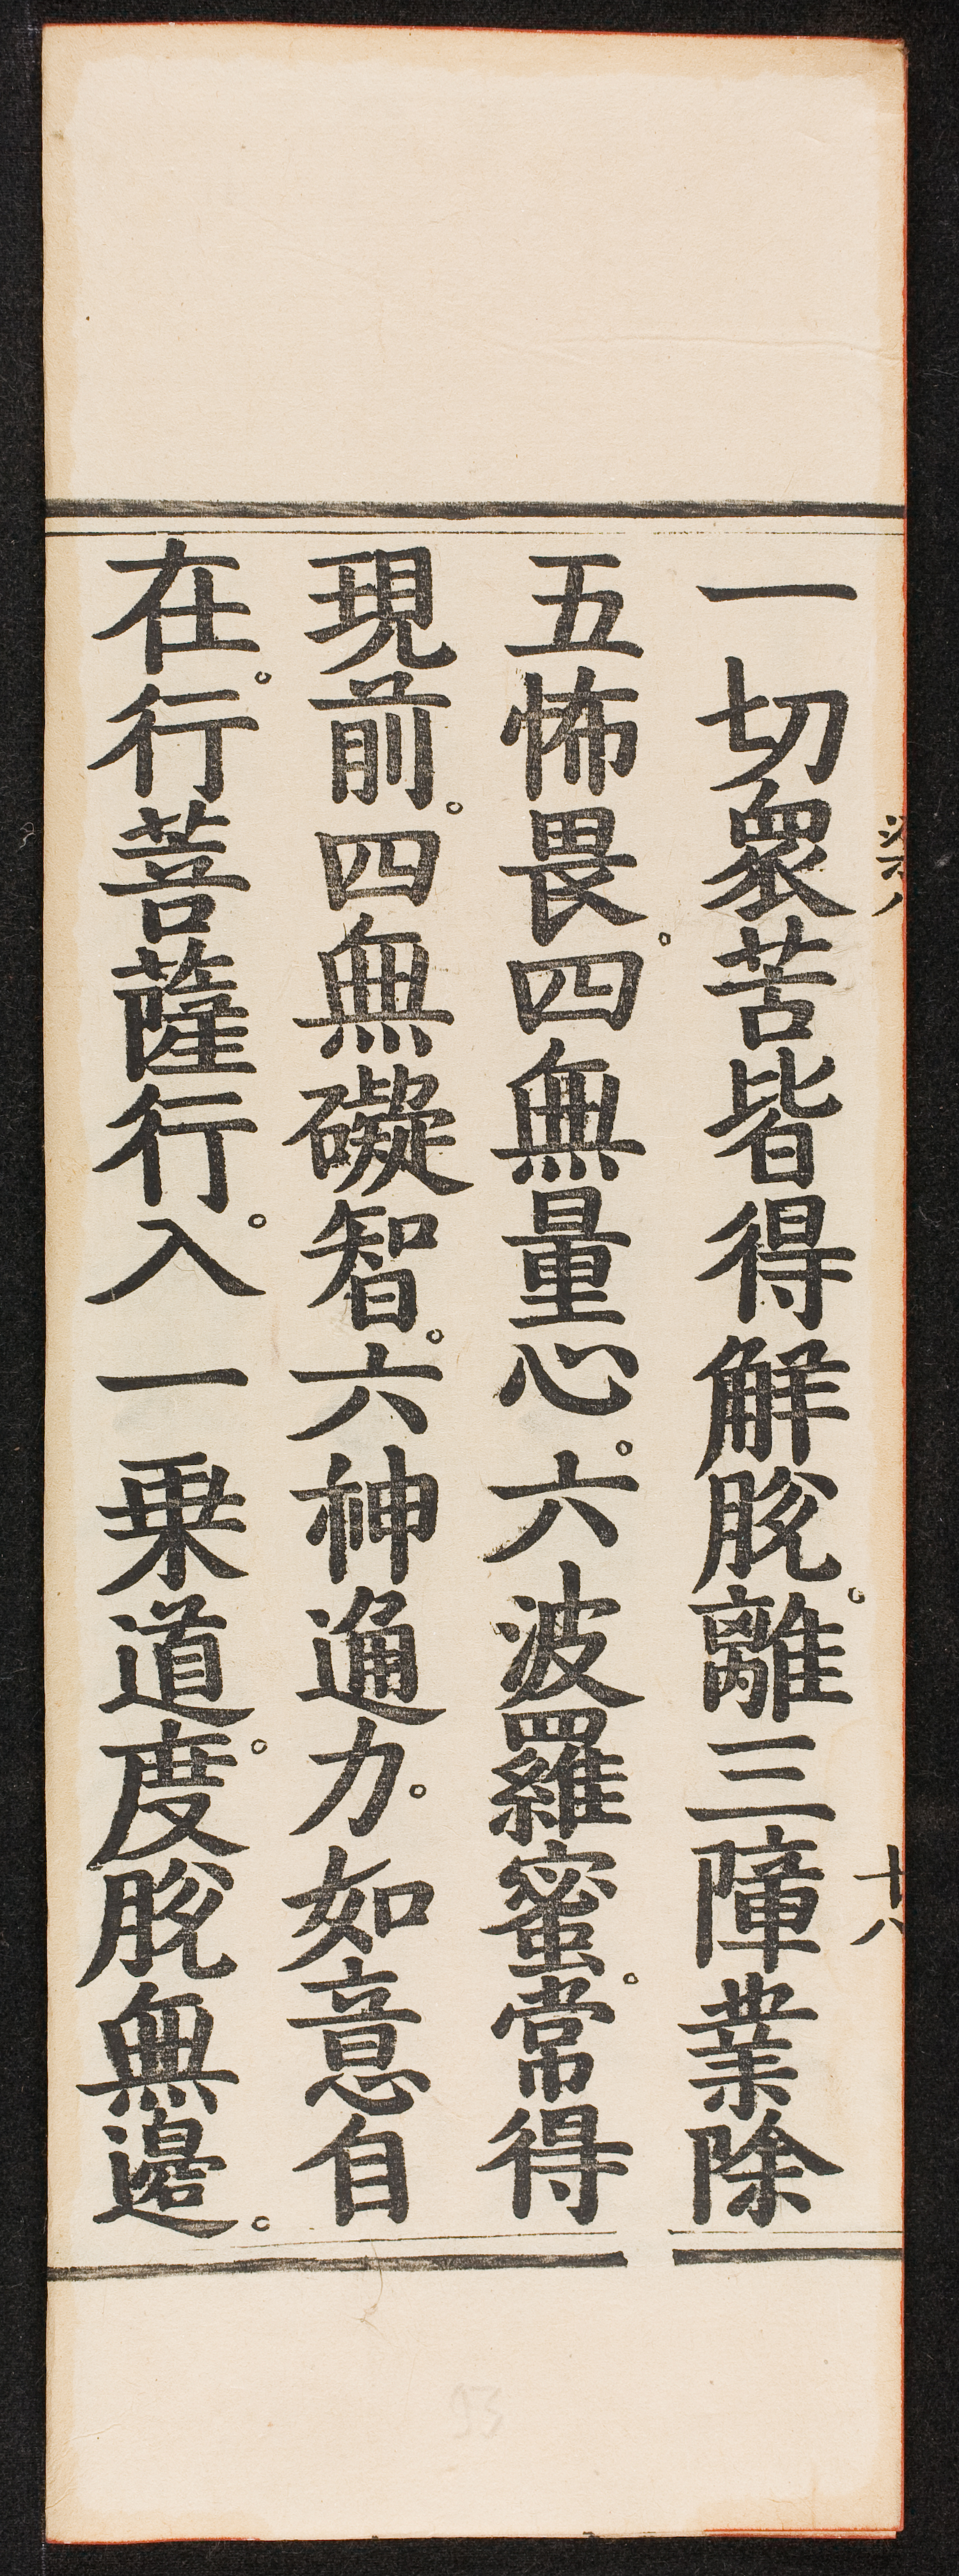 一切衆苦皆得解脫。離三障業除
五怖畏。四無量心。六波羅蜜。常得
現前。四無礙智。六神通力。如意自
在。行菩薩行。入一乗道。度脫無邊。
十八